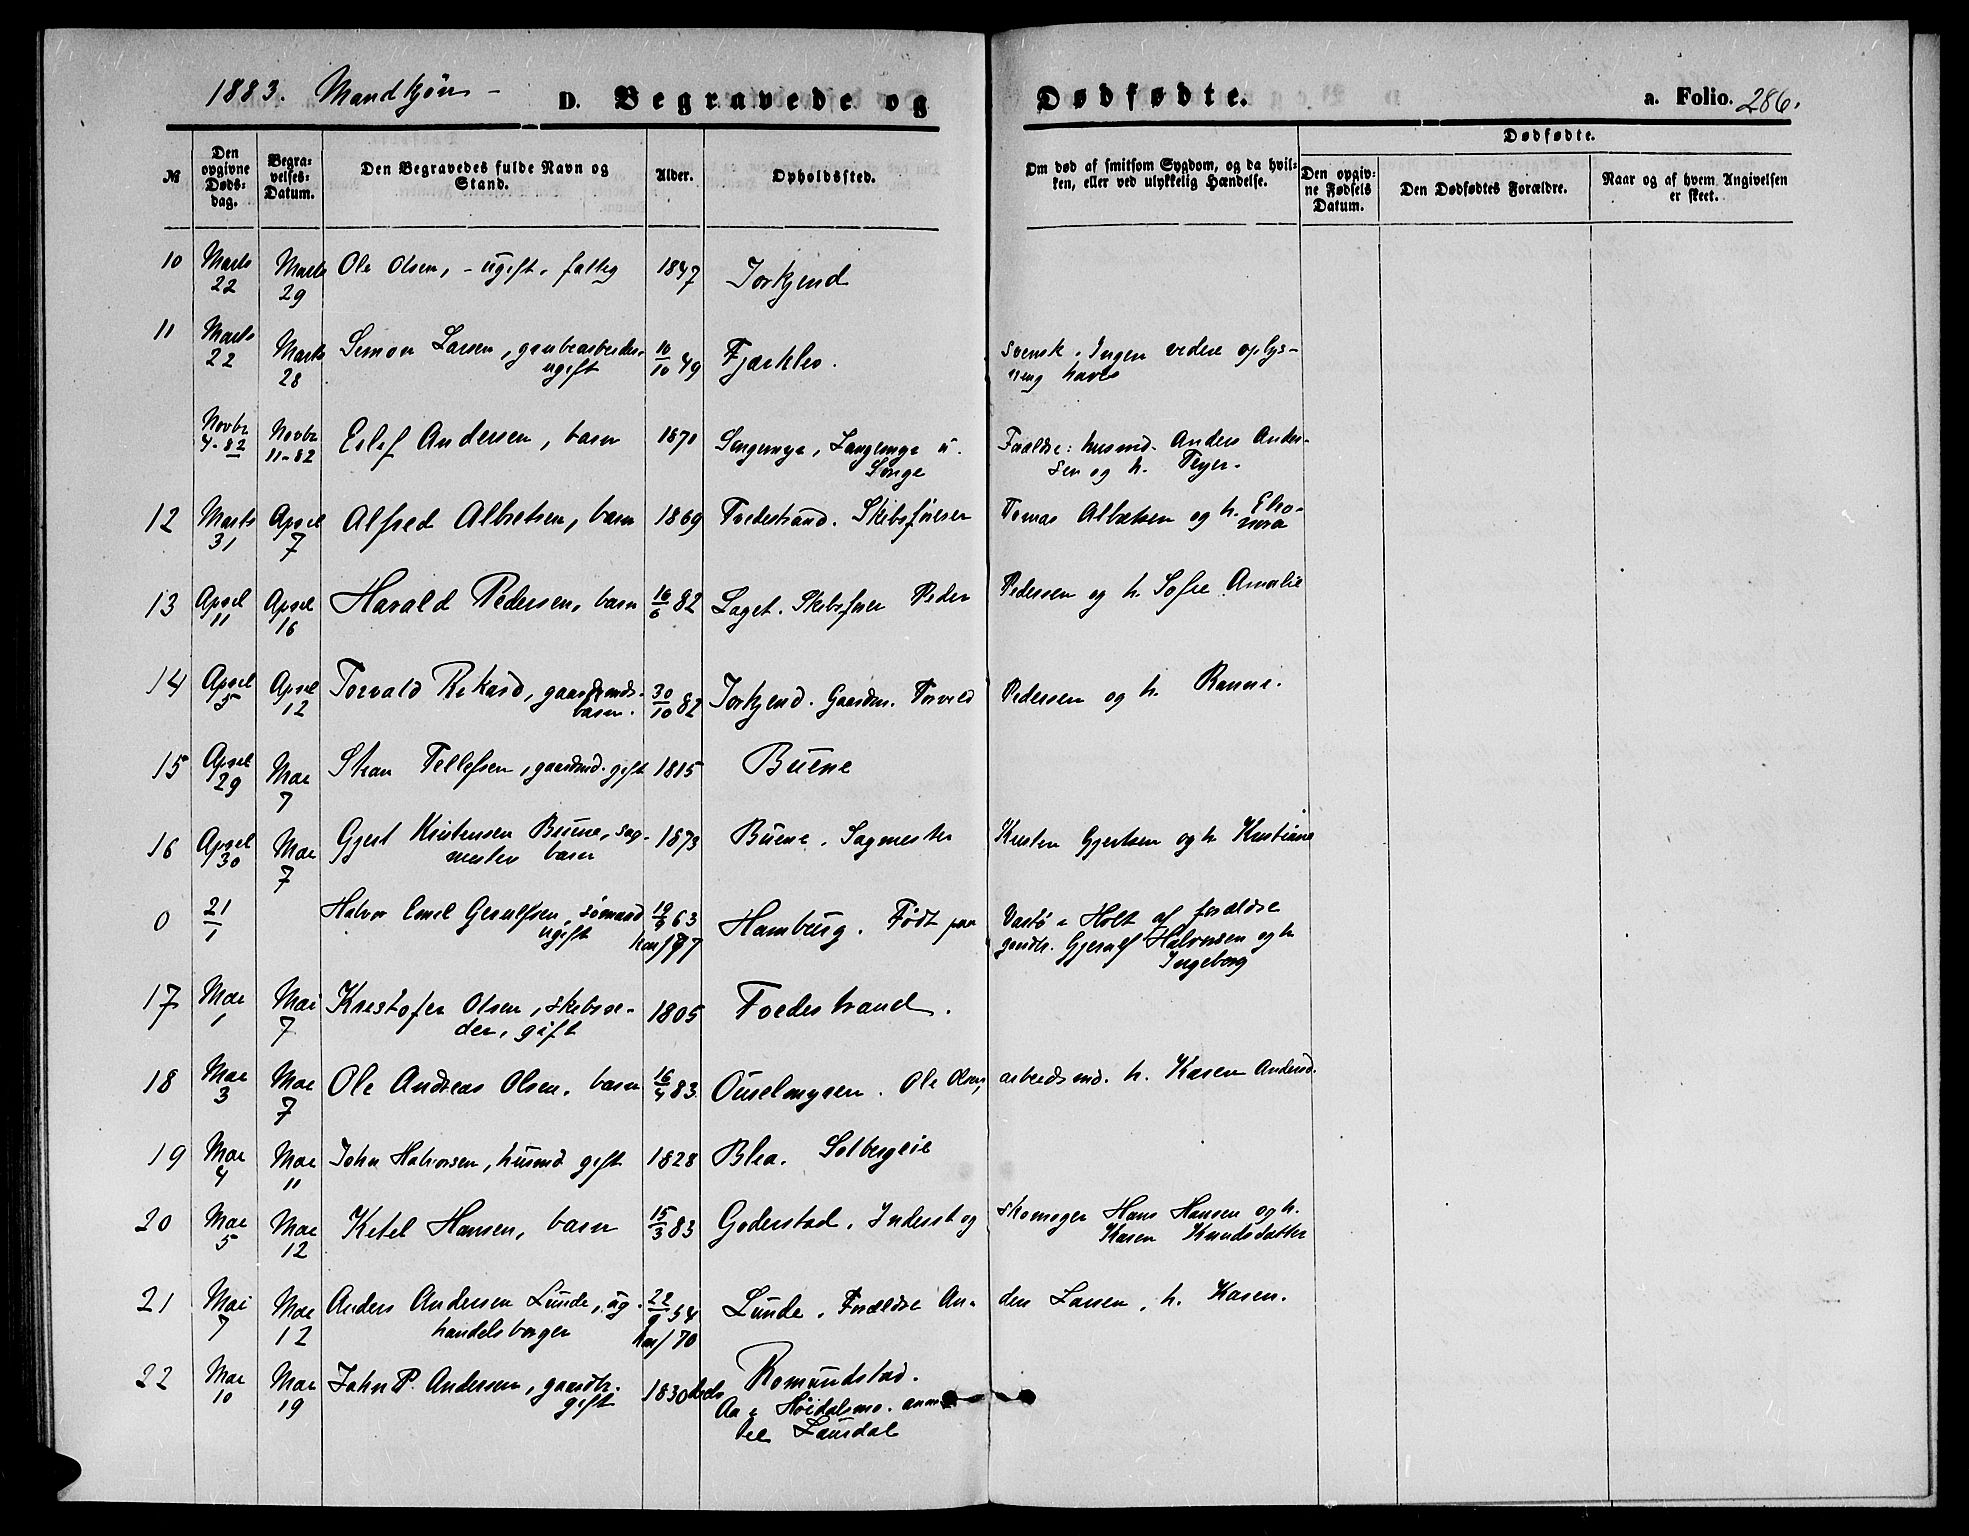 1883. Mandkjøn -
D. Begravede og Dødfødte.
a. Folio. 286.
№
Den opgivne Dødsdag.
Begravelses-Datum.
Den Begravedes fulde Navn og Stand.
Alder.
Opholdssted.
Om død af smitsom Sygdom, og da hvilken, eller ved ulykkelig Hændelse.
Dødfødte.
Den opgivne Fødsels Datum.
Den Dødfødtes Forældre.
Naar og af hvem Angivelsen er skeet.
10 Marts 22 Marts 29 Ole Olsen, - ugift, fattig 1847
11 Marts 22 Marts 28 Simon Larsen, grubearbeider, ugift 10/10 49 Fjærklev. svensk. Ingen videre oplys-
ning haves
Novbr 4-82 Novbr 11-82 Eilef Andersen, barn 1871 Songemyr, Langemyr u.
Songe
husmd. Anders Ander-
sen og h.
12 Marts 31 April 7 Alfred Albretsen, barn 1869 Tvedestrand. Skibsfører Tomas Albretsen og h. Eleo-
nora
13 April 11 April 16 Harald Pedersen, barn 16/6 82 Laget. Skibsfører Peder Pedersen og h. Sofie Amalie
14 April 5 April 12 Torvald Rikard, gaardmands-
barn. 30/10 82 Gaardm. Torvild Pedersen og h.
15 April 29 Mai 7 Tellefsen, gaardmd. gift 1815 Buene
16 April 30 Mai 7 Gjert Kristensen Buene, sag-
mester barn 1873 Buene. Sagmester Kristen Gjertsen og h. Kristiane
0 21/1 Halvor Emil Gerulfsen, sømand
ugift 63 Hamburg. Født paa i Holt af forældre
gaardbr. Gjerulf Halvorsen og h.
Ingeborg
17 Mai 1 Mai 7 Kristofer Olsen, skibsre-
der, gift 1805 Tvedestrand.
18 Mai 3 Mai 7 Ole Andreas Olsen, barn 16/4 83. Ole Olsen, arbeidsmd. h. Karen Andersd.
19 Mai 4 Mai 11 John Halvorsen, husmd gift 1828 Blea. Solbergeie
20 Mai 5 Mai 12 Ketel Hansen, barn 15/3 83 Goderstad. Inderst og skomager Hans Hansen og h.
Karen Knudsdatter
21 Mai 7 Mai 12 Anders Andersen Lunde, ug.
handelsborger 22/9 54
70 Lunde. Forældre An-
ders Larsen, h. Karen.
22 Mai 10 Mai 19 John P. Andersen, gaardbr.
gift 1830 Romundstad.
Aa i Høidalsmo.